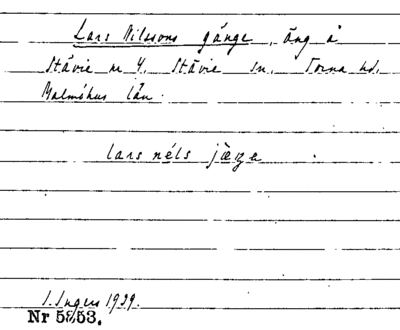 Lars Nilssons gånge, äng å
Stävie nr 4. Stävie sn. Torna hd.
Malmöhus län.
lars néls
S. Ingers 1939.
Nr 5853.